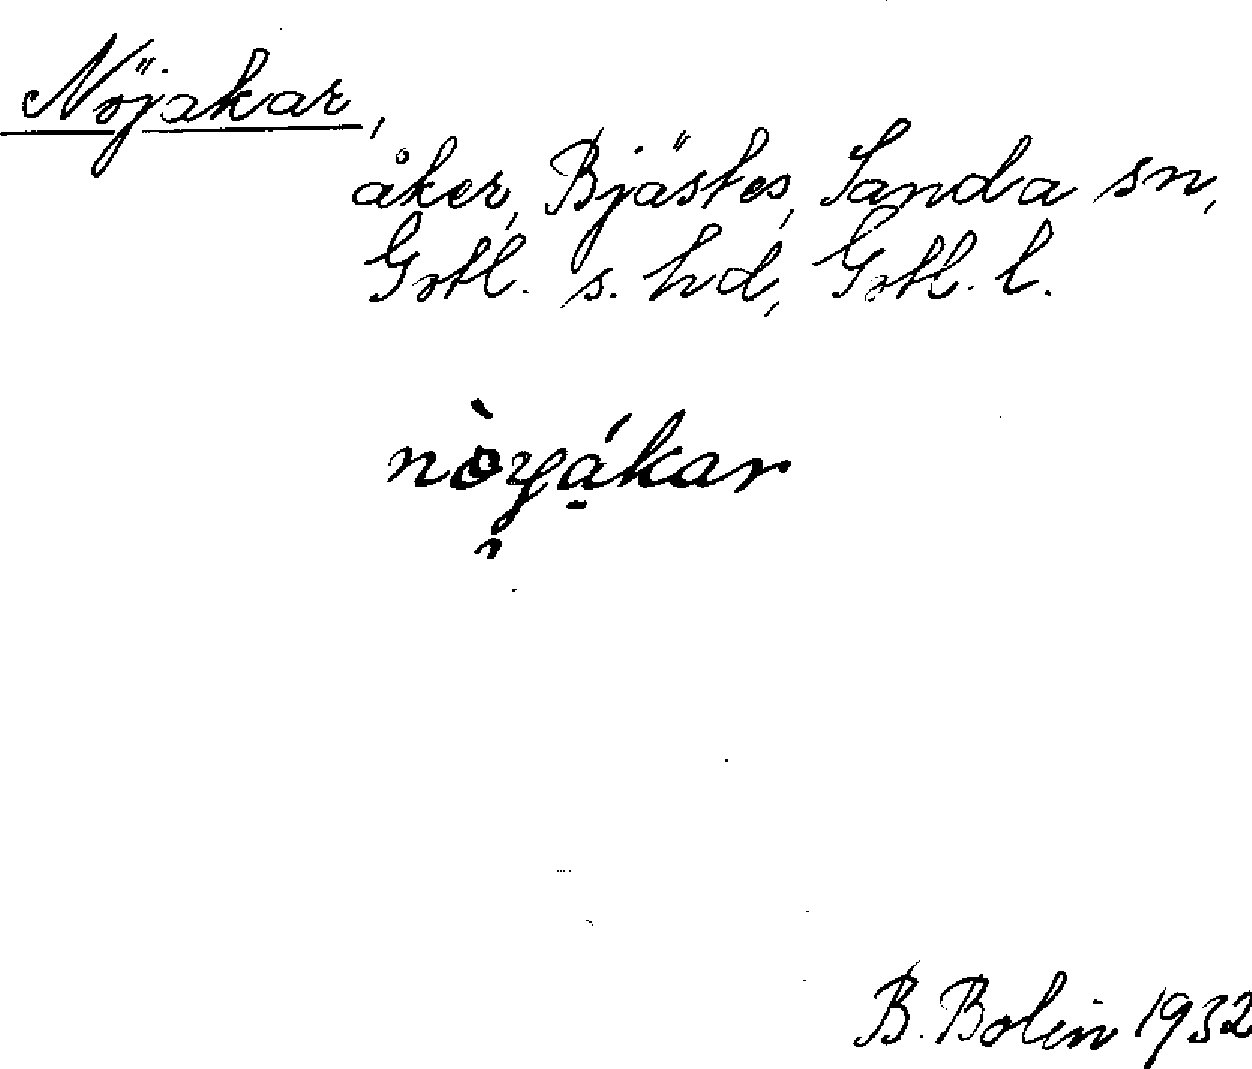 Nöjakar,
åker, Bjästes, Sanda sn,
Gotl. s. hd, Gotl. l.
nòyákar
B. Bolin 1932